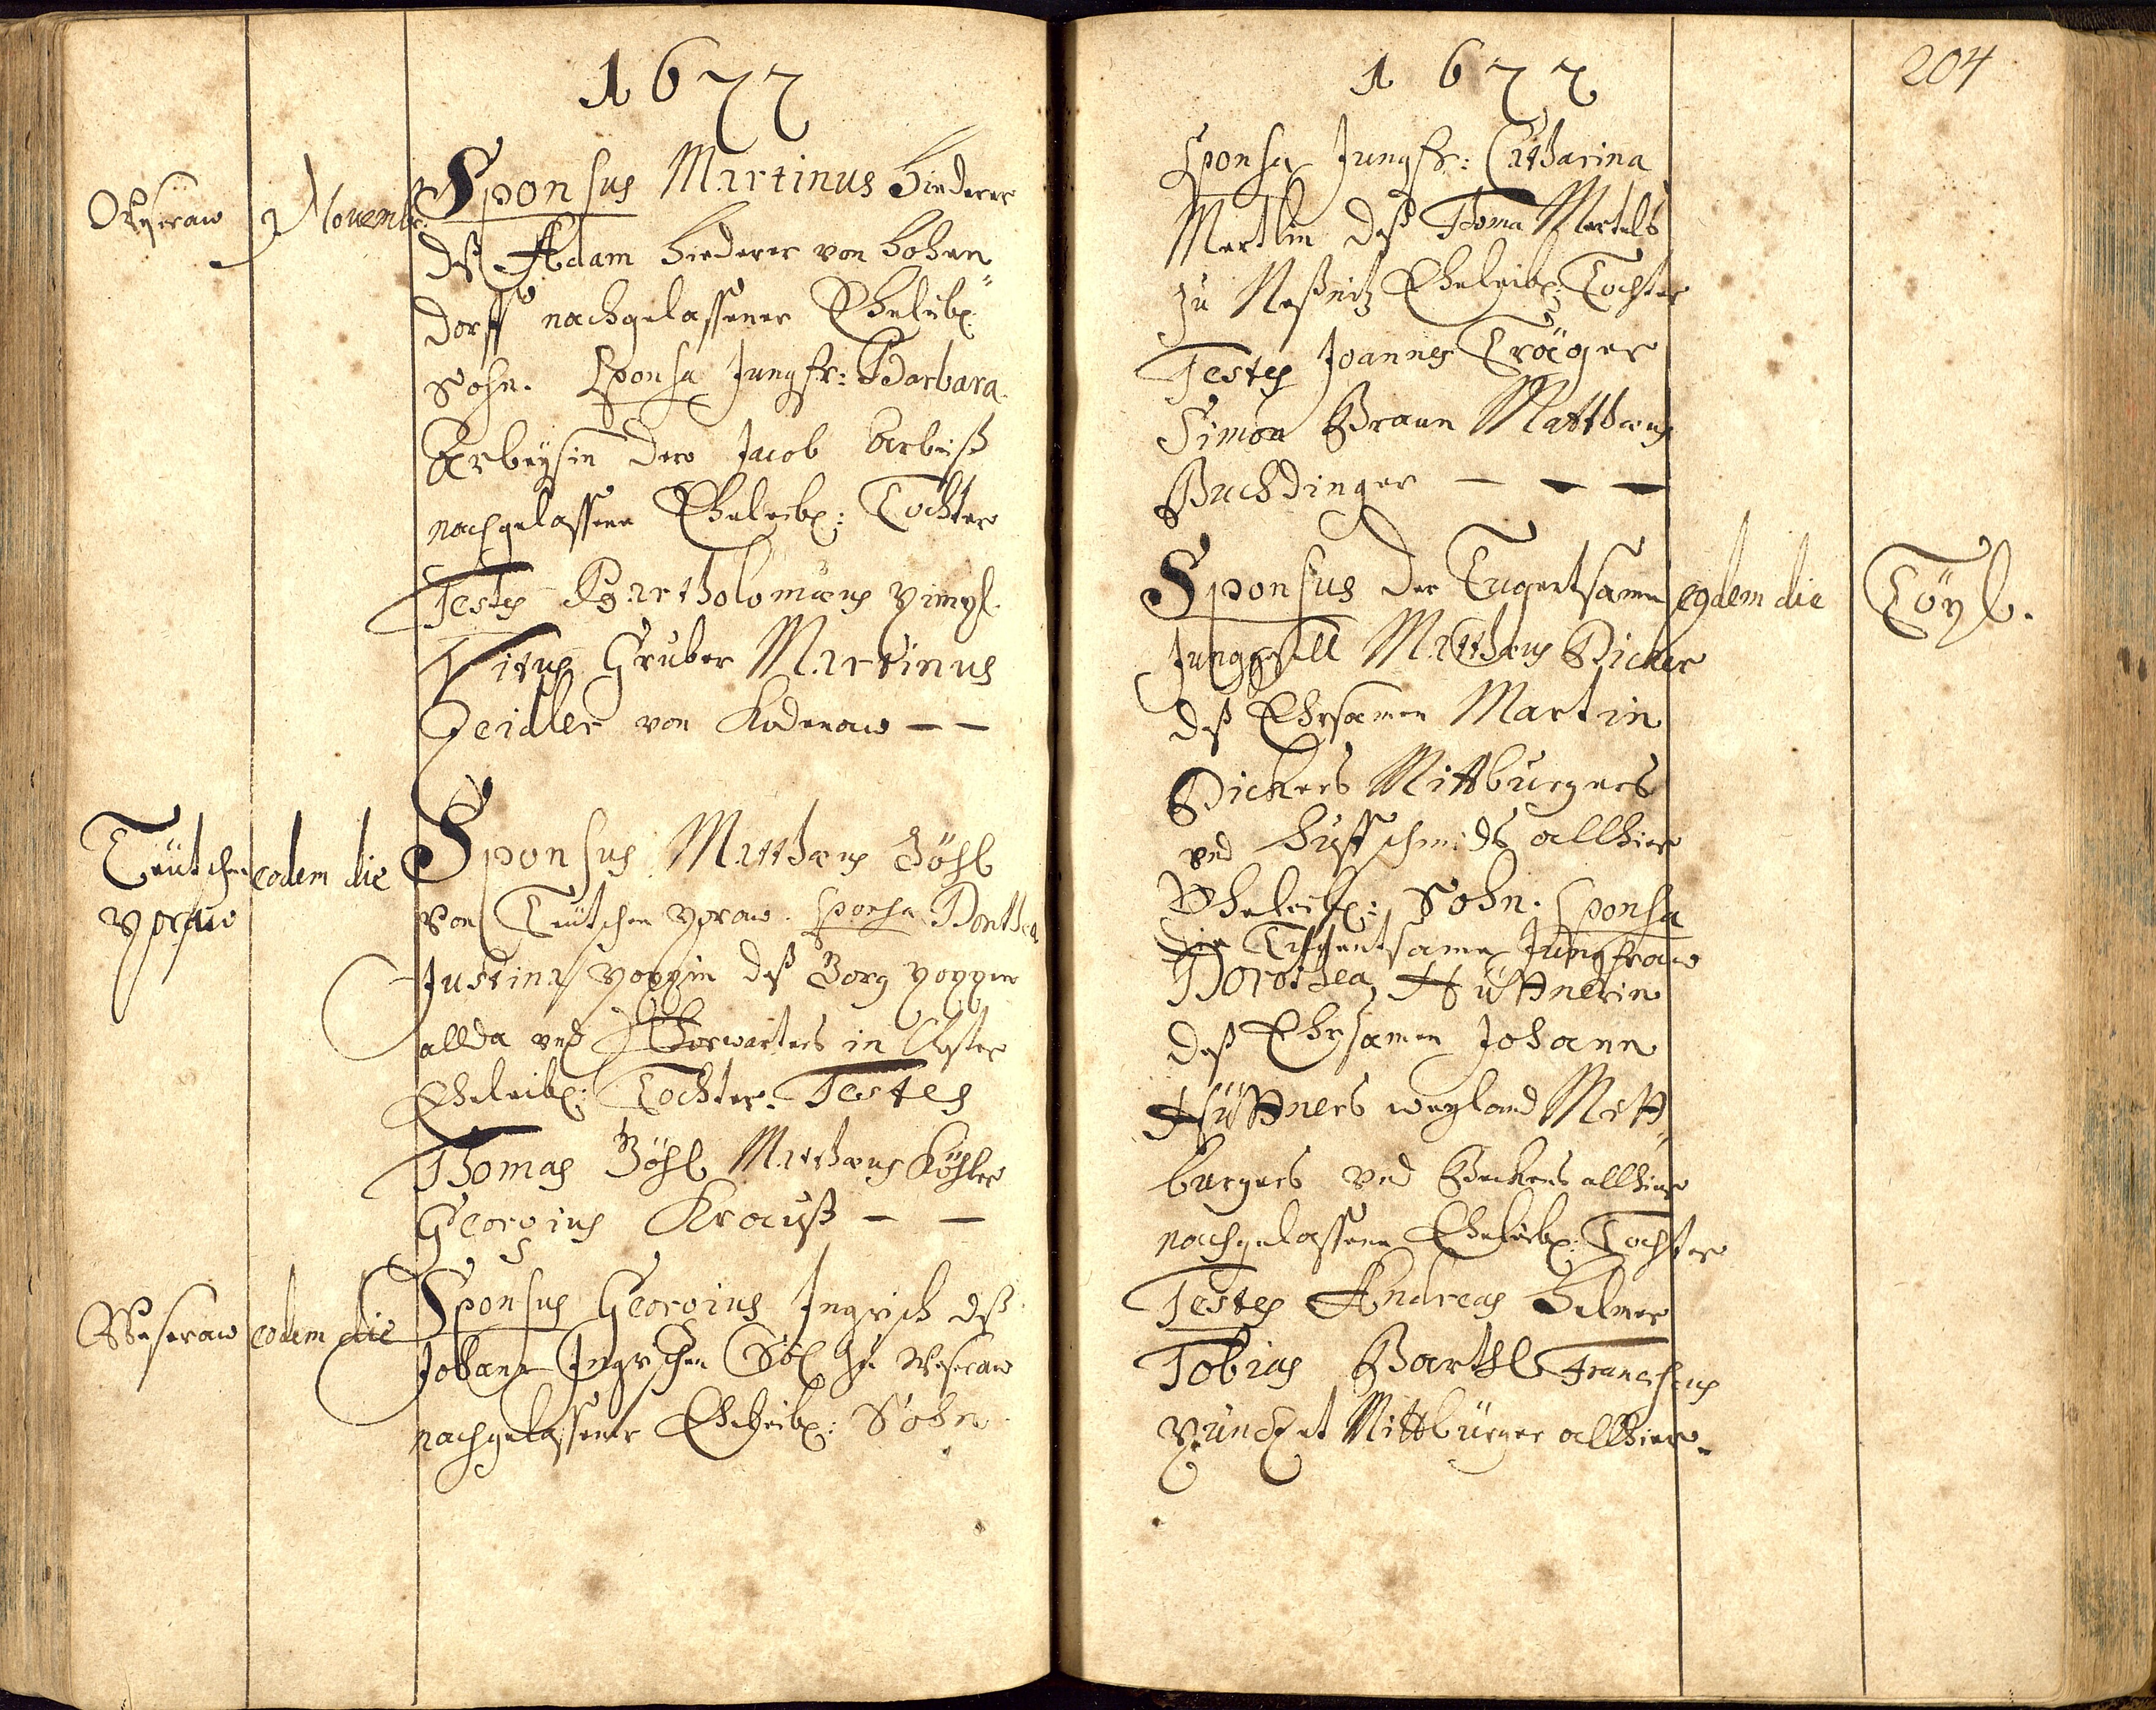 1677
Sponsus Martinus Hiederer
deß Adam Hiederer von Hohen
dorff nachgelassener Eheleibl:
Sohn. Sponsa Jungfr: Barbara
Arbeysin dero Jacob Arbeiß
nachgelassene Eheleibl: Tochter
Testes Bartholomæus
Vitus Gruber Martinus
Zeidler von Kodenaw — —
Novembr:
Teütschen
eodem die
Sponsus Matthæus Böhl
von Teütschen Sponsa Dorthea
Justina deß
allda vnd in
Eheleibl: Tochter. Testes
Thomas Böhl Matthæus Köhler
Georgius Krauß — —
Weseraw
eodem die
Sponsus Georgius Ingrisch deß
Johann Ingrischen Söl zu Weseraw
nachgelassener Eheleibl: Sohn
204
1677
Sponsa Jungfr: Catharina
Mertlin deß Thoma Mertels
zu Eheleibl: Tochter
Testes Joannes Träger
Simon Braun Matthæus
Buchdinger — — —
Sponsus der Tugentsame
eodem die
Töpl.
Junggsell Matthæus Dicker
deß Ehrsamen Martin
Dickers Mittburgers
vnd Hüffschmids allhier
Eheleibl: Sohn. Sponsa
Die Tugentsame Jungfraw
Dorothea Hüttnerin
deß Ehrsamen Johann
Hüttners weyland Mitt,
burgers vnd Beckens allhier
nachgelassene Eheleibl: Tochter
Testes Andreas Helmer
Tobias Barthl Franciscus
Mittbürger allhier.